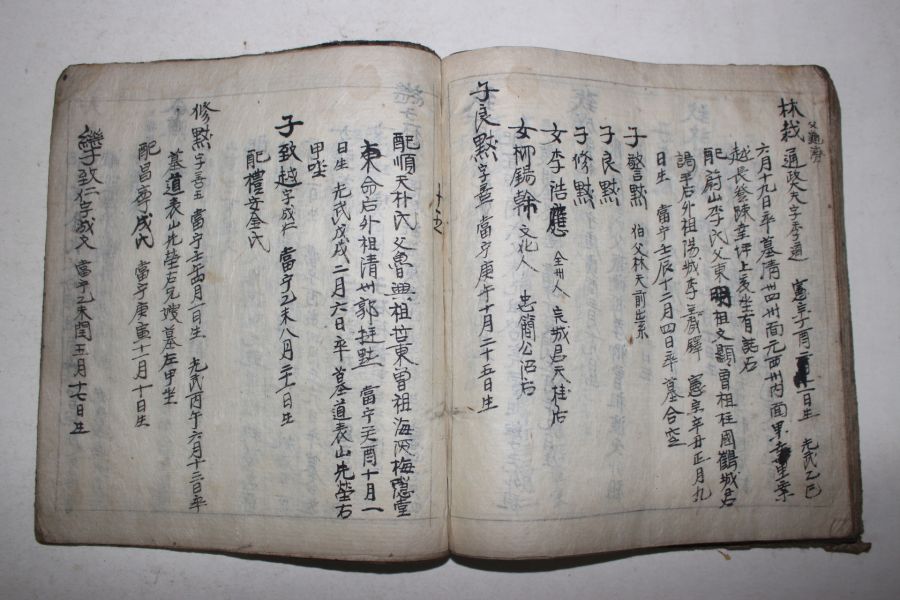 林哉 通政大夫字季通 憲宗丁酉 月一日生 光武乙巳
父
六月十九日卒墓清州四州面元西州内面
越 有誌石
配蔚山李氏父東明祖文顯曾祖桂國鶴城君
諱平后外祖陽城李 憲宗辛丑正月九
日生 當宁壬辰十二月四日卒 墓合窆
子警黙 伯父林天前出系
子良黙
子修黙
女李浩應 全州人 完城君天桂后
女柳錫幹 文化人 忠簡公沼后
子良黙 字 當宁庚午十月二十五日生
十
配順天朴氏父魯興祖世東曾祖海 梅隱堂
東命后外祖清州郭 當宁天酉十月一
日生 光武戊戌二月六日卒 墓道表山先塋右
甲坐
子致越 字成 當宁乙未八月二十一日生
配禮安金氏
修黙 字善五 當宁壬午四月一日生 光武丙午六月十三日卒
墓道表山先塋右兄嫂墓左甲坐
配昌寧成氏 當宁庚寅十一月十日生
繼子致仁字成文 當宁乙未閏五月十七日生